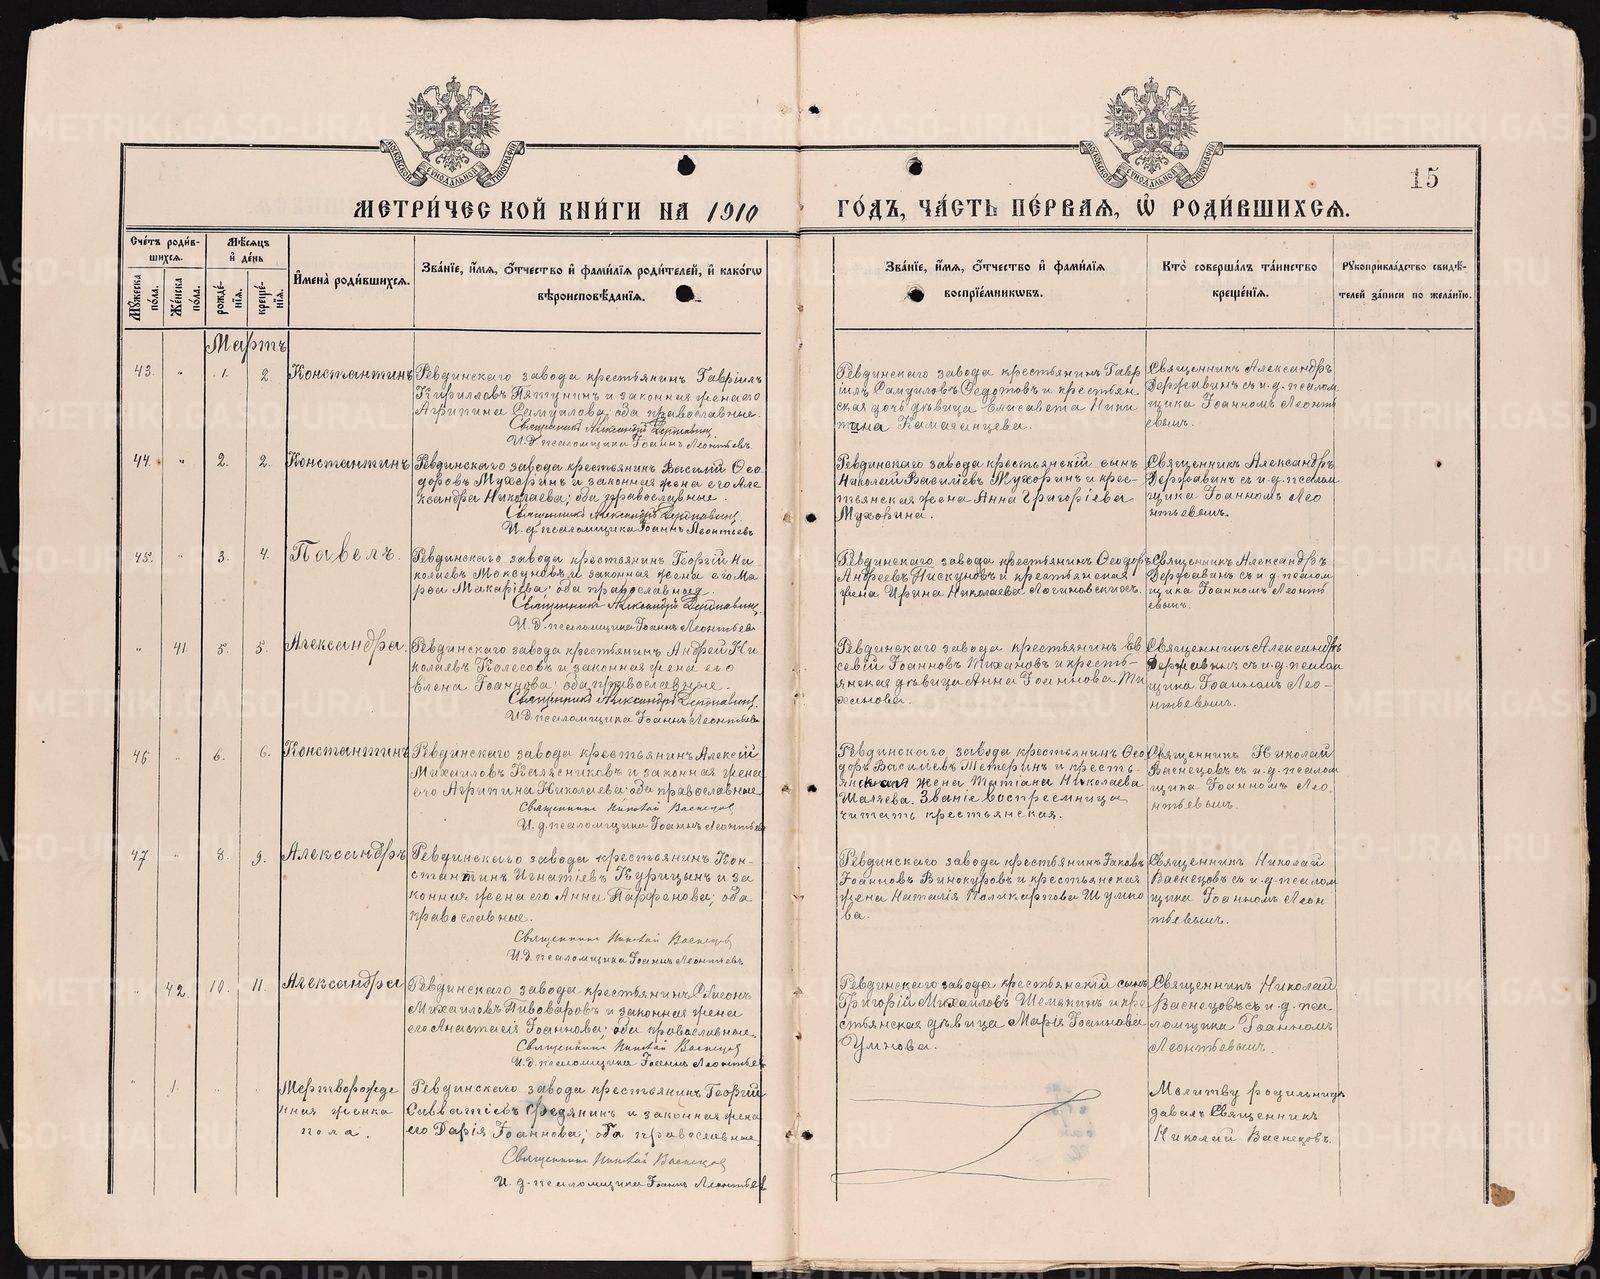 МЕТРИ́ЧЕСКОЙ КНИ́ГИ НА 1910
ГО́ДЪ, ЧА́СТЬ ПЕ́РВАЯ, Ѡ РОДИ́ВШИХСЯ.
15
Сче́тъ роди́в-
шихся.
Мужеска по́ла.
Же́нска по́ла.
Мѣ́сяцъ
и́ де́нь
рожде́-
нїя.
креще́-
нїя.
И́мена̀ роди́вшихся.
Зва́нїе, и́мя, ѻ́тчество и́ фами́лїя роди́телей, и́ како́гѡ
вѣроисповѣ́данїя.
Зва́нїе, и́мя, ѻ́тчество и́ фами́лїя
воспрїе́мникѡвъ.
Кто̀ соверша́лъ та́инство
креще́нїя.
Рꙋкоприкла́дство свидѣ́-
телей за́писи по жела́нїю.
Мартъ
43. " 1. 2. Константинъ
Ревдинскаго завода крестьянинъ Гавріилъ
Кирилловъ Пятунинъ и законная жена его
Агрипина Самуилова; оба православные.
Священникъ Александръ Державинъ
И. д. псаломщика Іоаннъ Леонтьевъ
Ревдинскаго завода крестьянинъ Гавр
іилъ Самуиловъ Ѳедотовъ и крестьян
ская дочь дѣвица Елисавета Ники
тина Камаганцева.
Священникъ Александръ
Державинъ съ и. д. псалом
щика Іоанномъ Леонть
евым.
44. " 2. 2. Константинъ
Ревдинскаго завода крестьянинъ Василій Ѳео
доровъ Мухоринъ и законная жена его Але
ксандра Николаева; оба православные.
Священникъ Александръ Державинъ
И. д. псаломщика Іоаннъ Леонтьевъ
Ревдинскаго завода крестьянскій сынъ
Николай Василіевъ Мухоринъ и крес-
тьянская жена Анна Григоріева
Мухорина.
Священникъ Александръ
Державинъ съ и. д. псалом
щика Іоанномъ Лео
нтьевым.
45. " 3. 4. Павелъ.
Ревдинскаго завода крестьянинъ Георгій Ни-
колаевъ Моксуновъ и законная жена его Ма-
рѳа Макаріева; оба православныя.
Священникъ Александръ Державинъ
И. д. псаломщика Іоаннъ Леонтьевъ
Ревдинскаго завода крестьянинъ Ѳеодоръ
Андреевъ Пискуновъ и крестьянская
жена Ирина Николаева Логиновскихъ.
Священникъ Александръ
Державинъ съ и. д. псалом
щика Іоанномъ Леонть
евым.
" 41 5. 5. Александра.
Ревдинскаго завода крестьянинъ Андрей Ни
колаевъ Колесовъ и законная жена его
Елена Іоаннова; оба православные.
Священникъ Александръ Державинъ
И. д. псаломщика Іоаннъ Леонтьевъ
Ревдинскаго завода крестьянинъ Ев
севій Іоанновъ Тихановъ и кресть-
янская дѣвица Анна Іоаннова Ти
ханова.
Священникъ Александръ
Державинъ съ и. д. псалом
щика Іоанномъ Лео-
нтьевым.
46 " 6. 6. Константинъ
Ревдинскаго завода крестьянинъ Алексій
Михаиловъ Калясниковъ и законная жена
его Агрипина Николаева; оба православные
Священникъ Николай Васнецовъ
И. д. псаломщика Іоаннъ Леонтьевъ
Ревдинскаго завода крестьянинъ Ѳео
доръ Василіевъ Тетеринъ и кресть-
янская жена Татіана Николаева
Шаляева. Званіе воспреемницы
читать крестьянская.
Священникъ Николай
Васнецовъ съ и. д. псалом
щика Іоанномъ Лео
нтьевым.
47 " 8. 9. Александръ
Ревдинскаго завода крестьянинъ Кон-
стантинъ Игнатіевъ Курицынъ и за
конная жена его Анна Парѳенова; оба
православные.
Священникъ Николай Васнецовъ
И. д. псаломщика Іоаннъ Леонтьевъ
Ревдинскаго завода крестьянинъ Іаковъ
Іоанновъ Винокуровъ и крестьянская
жена Наталія Поликарпова Шумко
ва.
Священникъ Николай
Васнецовъ съ и. д. псалом
щика Іоанномъ Леон
тьевым.
" 42. 10. 11. Александра
Ревдинскаго завода крестьянинъ
Михаиловъ Пивоваровъ и законная жена
его Анастасія Іоаннова; оба православные
Священникъ Николай Васнецовъ
И. д. псаломщика Іоаннъ Леонтьевъ
Ревдинскаго завода крестьянскій сынъ
Григорій Михаиловъ Шемякинъ и кре
стьянская дѣвица Марія Іоаннова
Умнова.
Священникъ Николай
Васнецовъ съ и. д. пса
ломщика Іоанномъ
Леонтьевым.
" 1. " " Мертворожде
нная женска
пола.
Ревдинскаго завода крестьянинъ Георгій
Савватіевъ Федянинъ и законная жена
его Дарія Іоаннова; оба православные
Священникъ Николай Васнецов
И. д. псаломщика Іоаннъ Леонтьев
Молитву родильницѣ
давалъ Священникъ
Николай Васнецовъ.
METRIKI.GASO-URAL.RU